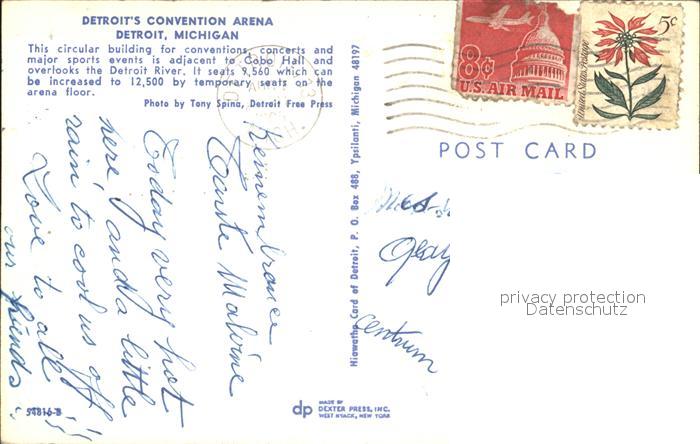 DETROIT'S CONVENTION ARENA
DETROIT, MICHIGAN
This circular building for conventions, concerts and
major sports events is adjacent to Cobo Hall and
overlooks the Detroit River. It seats 9,560 which can
be increased to 12,500 by temporary seats on the
arena floor.
Photo by Tony Spina, Detroit Free Press
Remembrance
Tante Malvine
Today very hot
here, and a little
rain to cool us off!!
Love to all
our friends.
54816-B
Hiawatha Card of Detroit, P. O. Box 488, Ypsilanti, Michigan 48197
dp
MADE BY
DEXTER PRESS, INC.
WEST NYACK, NEW YORK
8¢
U.S. AIR MAIL
5¢
United States Postage
POST CARD
centrum
privacy protection
Datenschutz